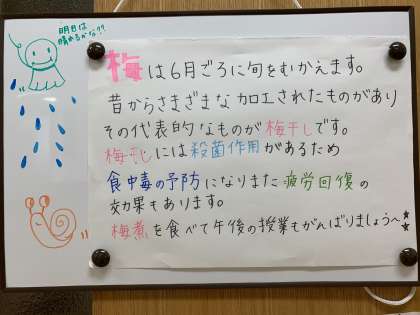 明日は
晴れるかな??
梅は6月ごろに旬をむかえます。
昔からさまざまな加工されたものがあり
その代表的なものが梅干しです。
梅干しには殺菌作用があるため
食中毒の予防になりまた疲労回復の
効果もあります。
梅煮を食べて午後の授業もがんばりましょう〜